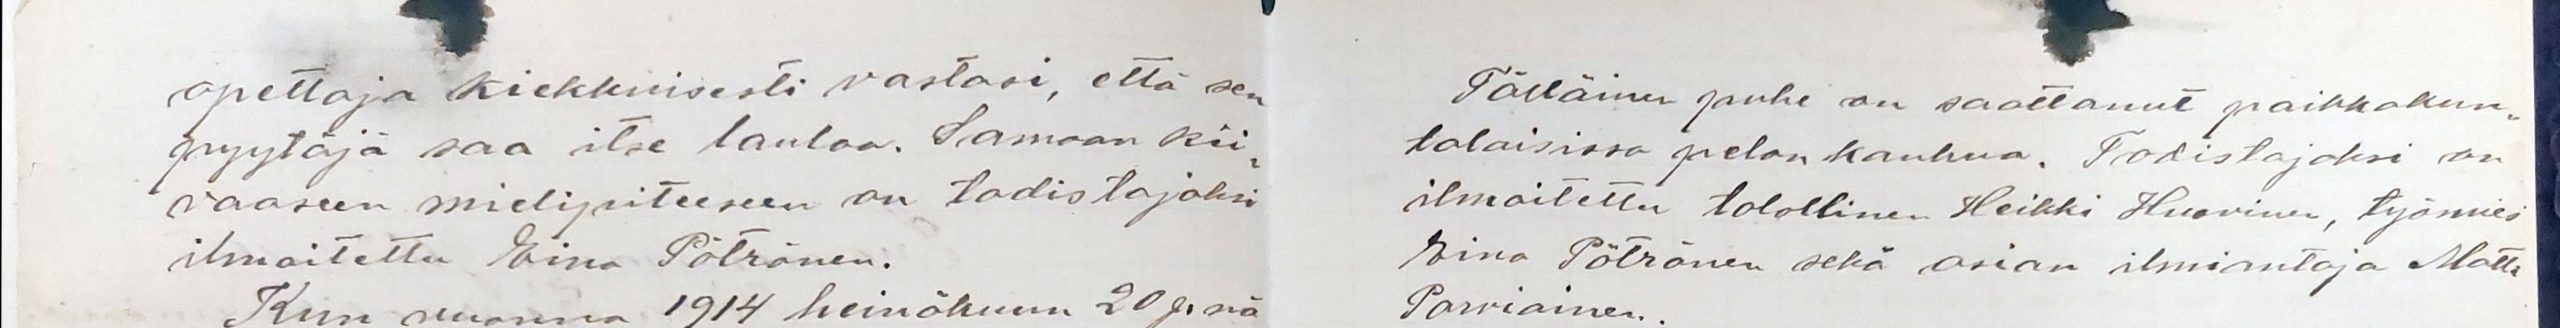 opettaja kiekkuisesti vastasi, että sen
pyytäjä saa itse laulaa. Samaan kii-
vaaseen mielipiteeseen on todistajaksi
ilmoitettu Eino Pötränen.
Kun vuonna 1914 heinäkuun 20 p:nä
Tälläinen puhe on saattanut paikkakun-
talaisissa pelon kauhua. Todistajaksi on
ilmoitettu talollinen Heikki Huovinen, työmies
Eino Pötränen sekä asian ilmiantaja Matti
Parviainen.